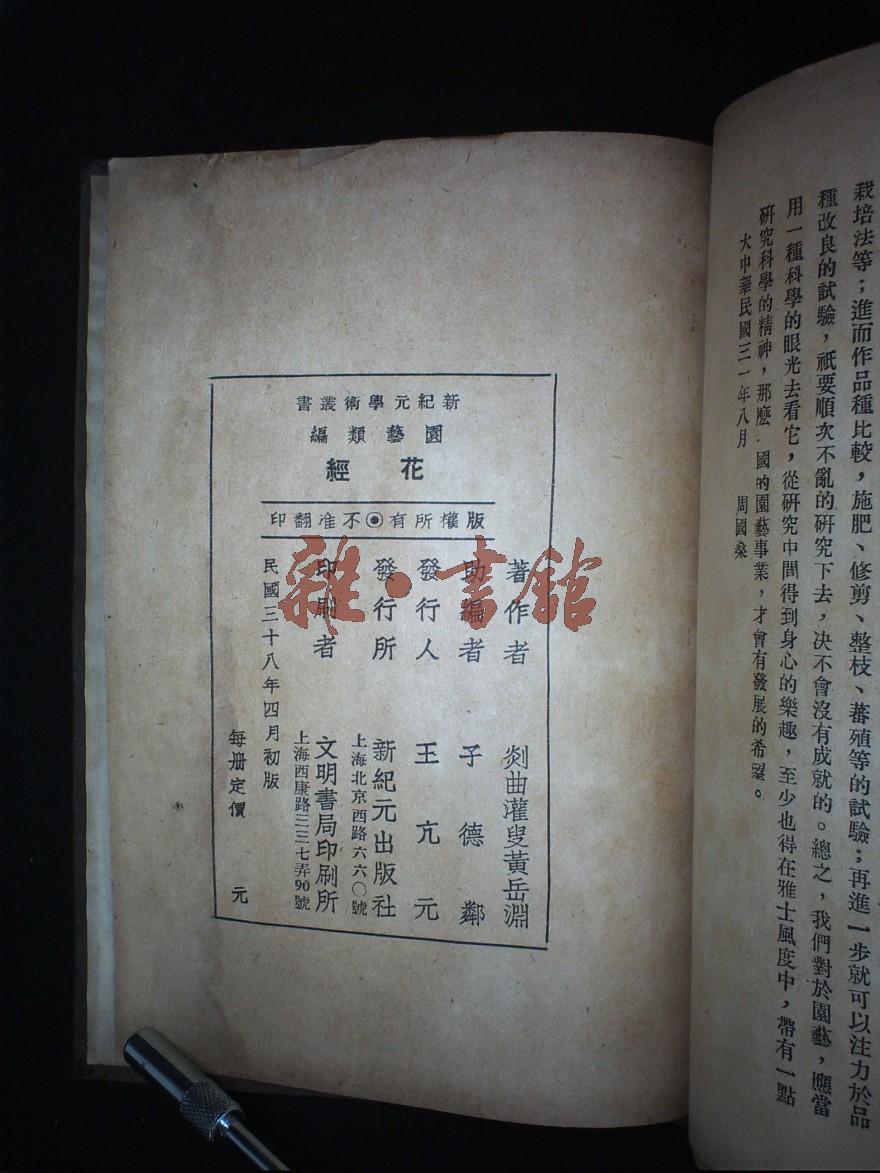 栽培法等；進而作品種比較，施肥、修剪、整枝、蕃殖等的試驗；再進一步就可以注力於品
種改良的試驗，祇要順次不亂的研究下去，决不會沒有成就的。總之，我們對於園藝，應當
用一種科學的眼光去看它，從研究中間得到身心的樂趣，至少也得在雅士風度中，帶有一點
研究科學的精神，那麽，國的園藝事業，才會有發展的希望。
大中華民國三一年八月　周國燊
新紀元學術叢書
園藝類編
花經
版權所有⦿不准翻印
著作者　剡曲灌叟黃岳淵
助編者　子德鄰
發行人　王亢元
發行所　新紀元出版社
上海北京西路六六〇號
印刷者　文明書局印刷所
上海西康路三三七弄90號
民國三十八年四月初版
每册定價　元
雜·書館